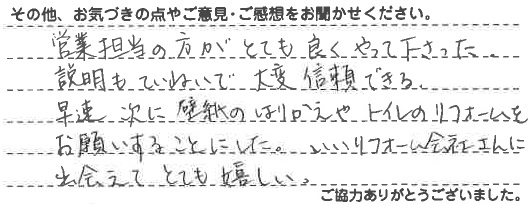 その他、お気づきの点やご意見・ご感想をお聞かせください。
営業担当の方がとても良くやって下さった。
説明もていねいで大変信頼できる。
早速次に壁紙のはりかえやトイレのリフォームを
お願いすることにした。いいリフォーム会社さんに
出会えてとても嬉しい。
ご協力ありがとうございました。